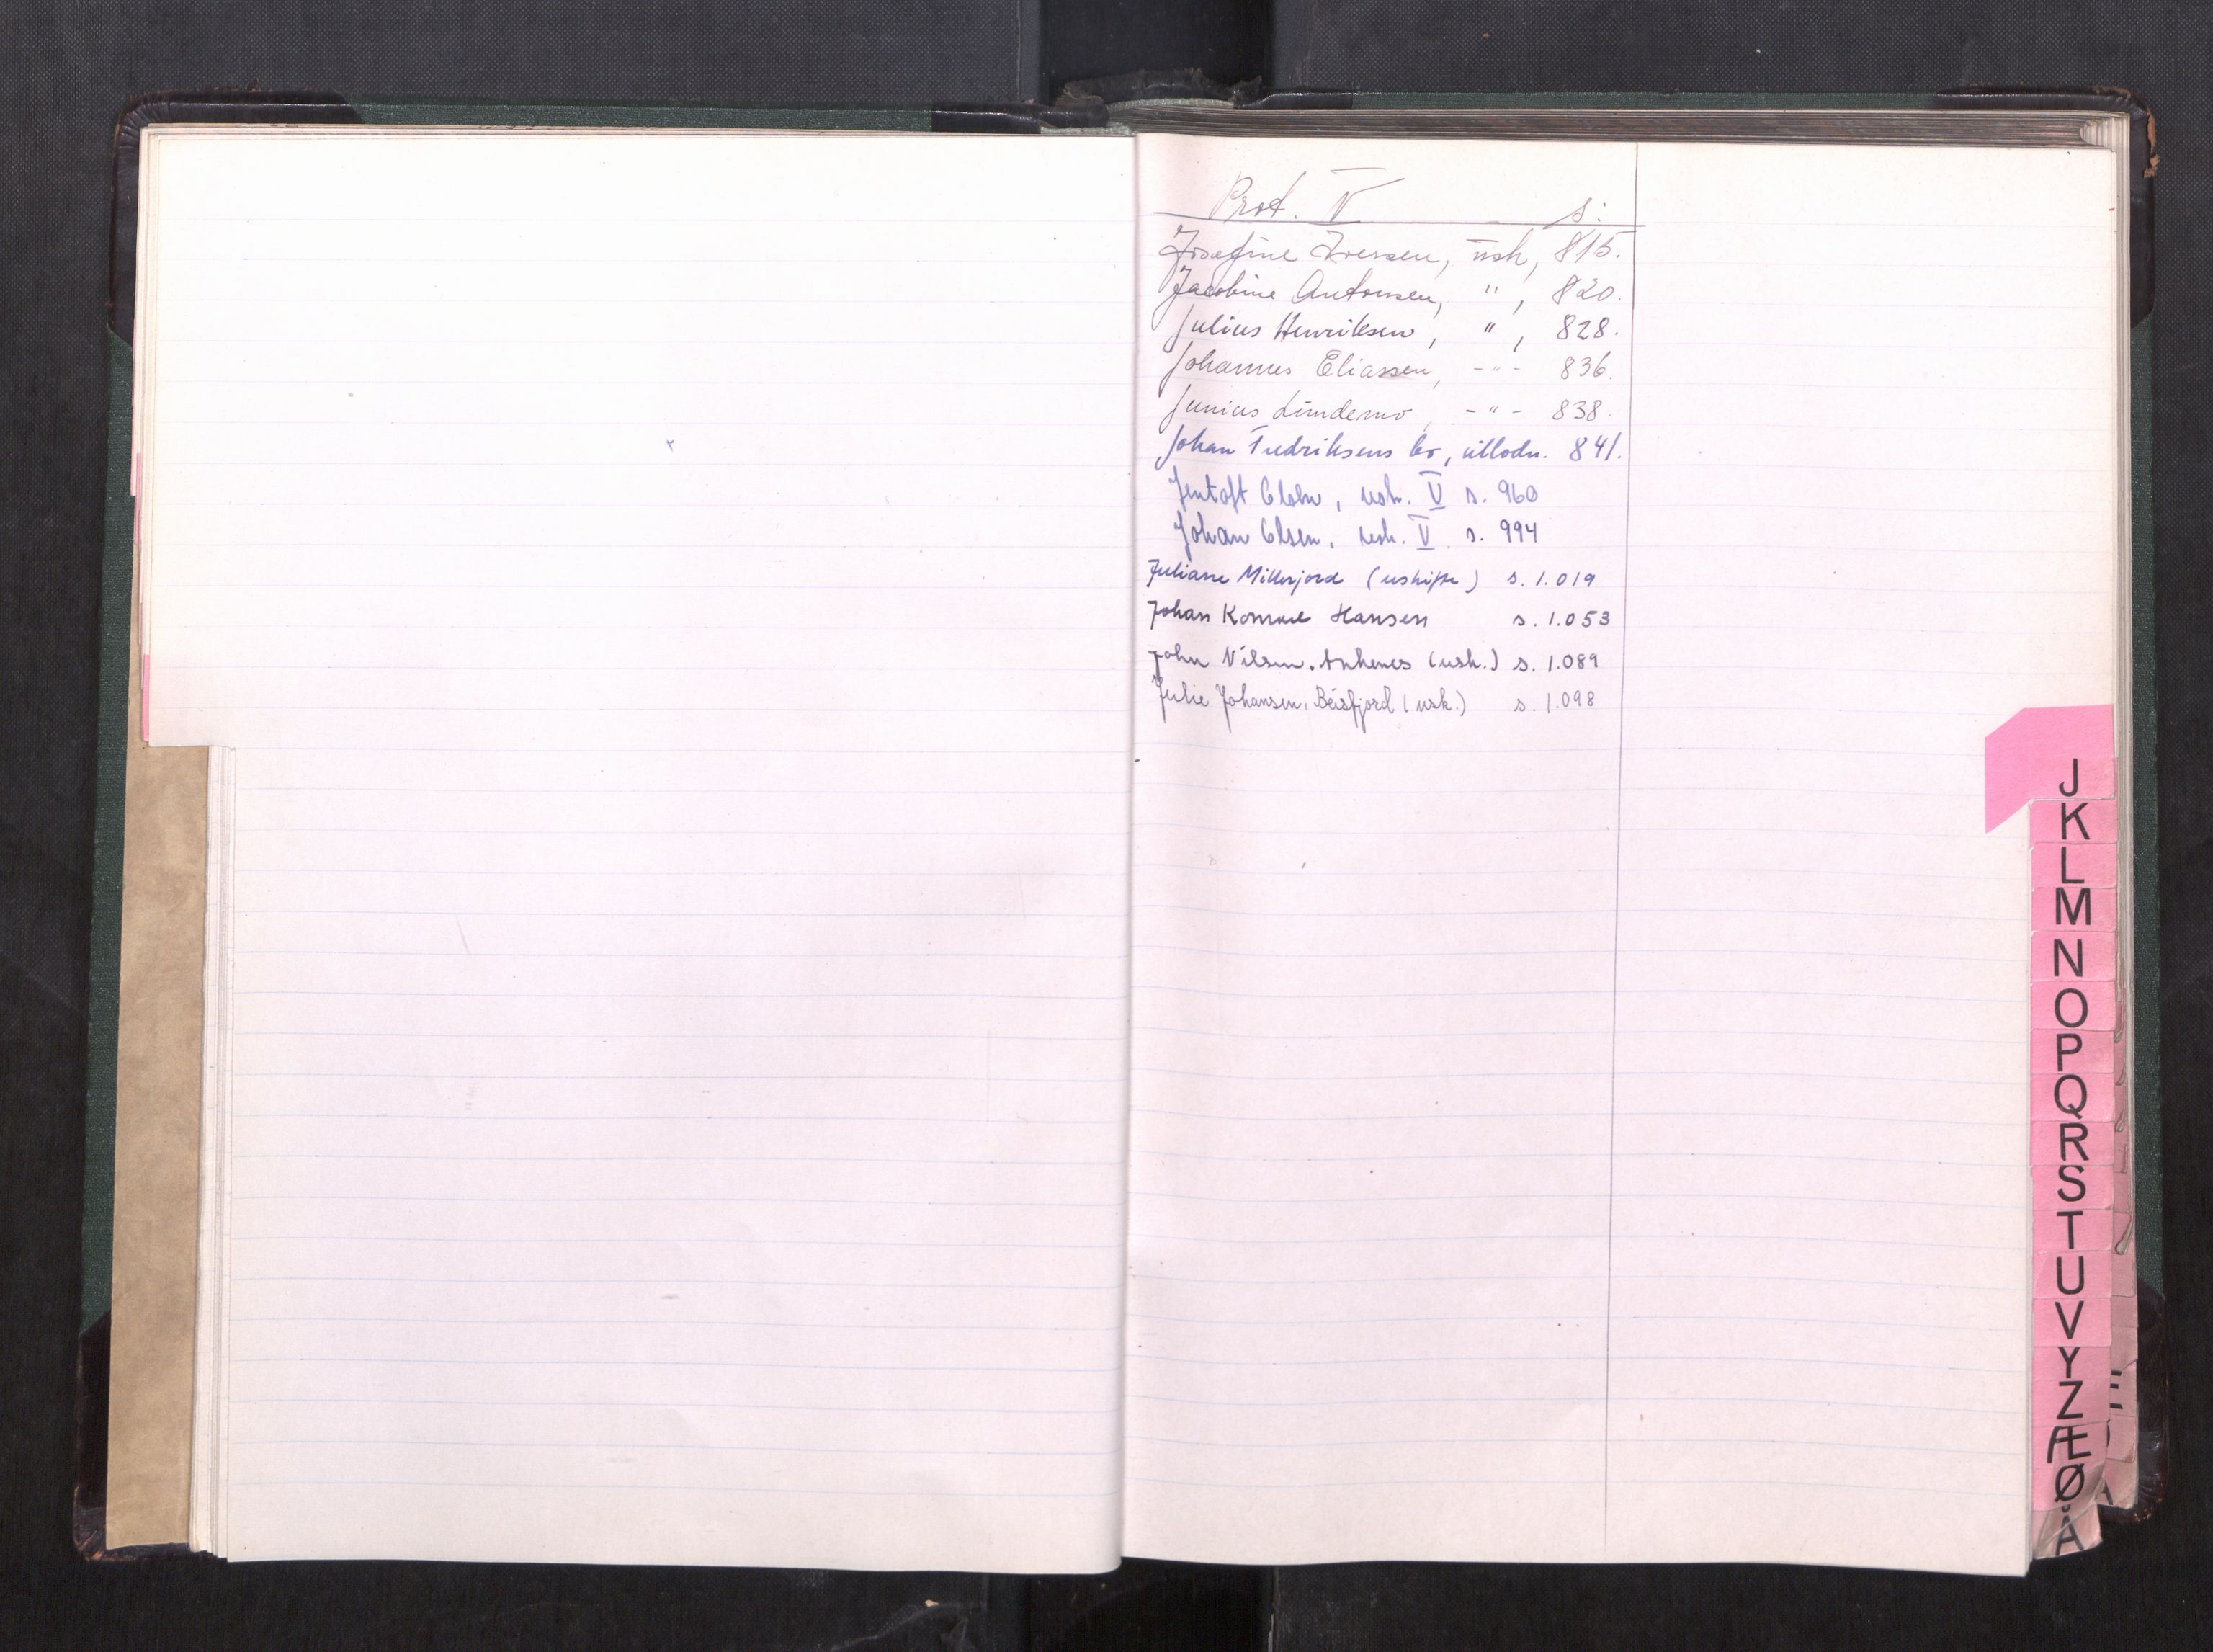 Prot. V s:
Josefine Iversen, ūsk, 815.
Jacobine Antonsen, " , 820.
Julius Henriksen , " , 828.
Johannes Eliassen, -"- 836.
Junius Lindemo , -"- 838.
Johan Fredriksens bo, utlodn. 841.
Jentoft Olsen, usk. V s. 960
Johan Olsen. usk. V. s. 994
Juliane Millerjord (uskifte) s. 1.019
Johan Konrad Hansen s. 1.053
John Nilsen. Ankenes (usk.) s. 1.089
Julie Johansen, Beisfjord (usk.) s. 1.098
J
K
L
M
N
O
P
Q
R
S
T
U
V
Y
Z
Æ
Ø
Å